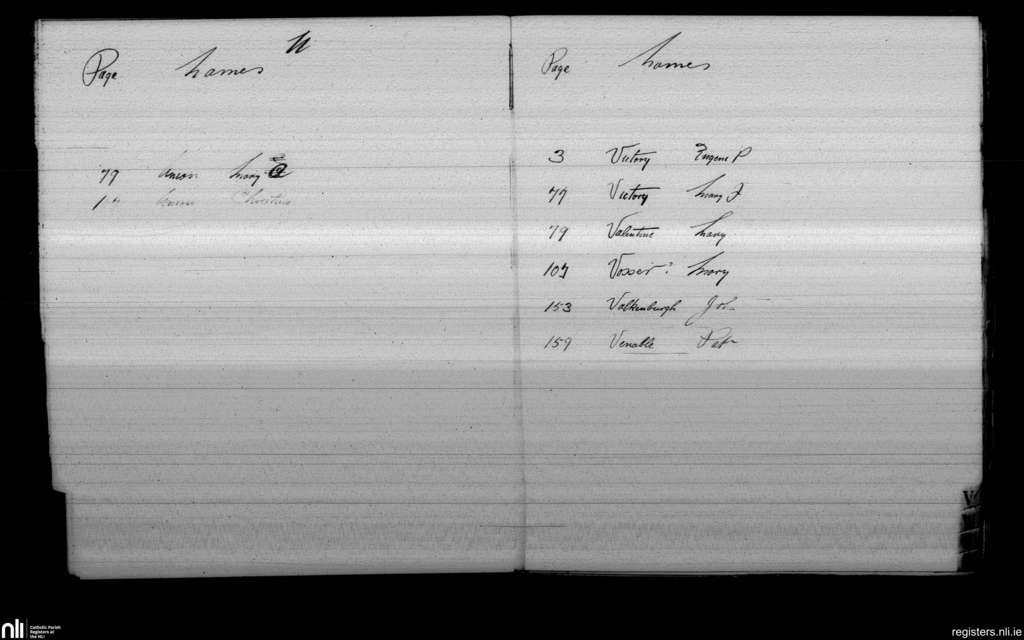 U
Page Names
79 Union Mary
Christina
Page Names
3 Victory Eugene P
79 Victory Mary J
79 Valentine Mary
107 Vosser? Mary
153 Valkenburgh Joh
159 Venable Pet
V
nli Catholic Parish Registers at the NLI
registers.nli.ie